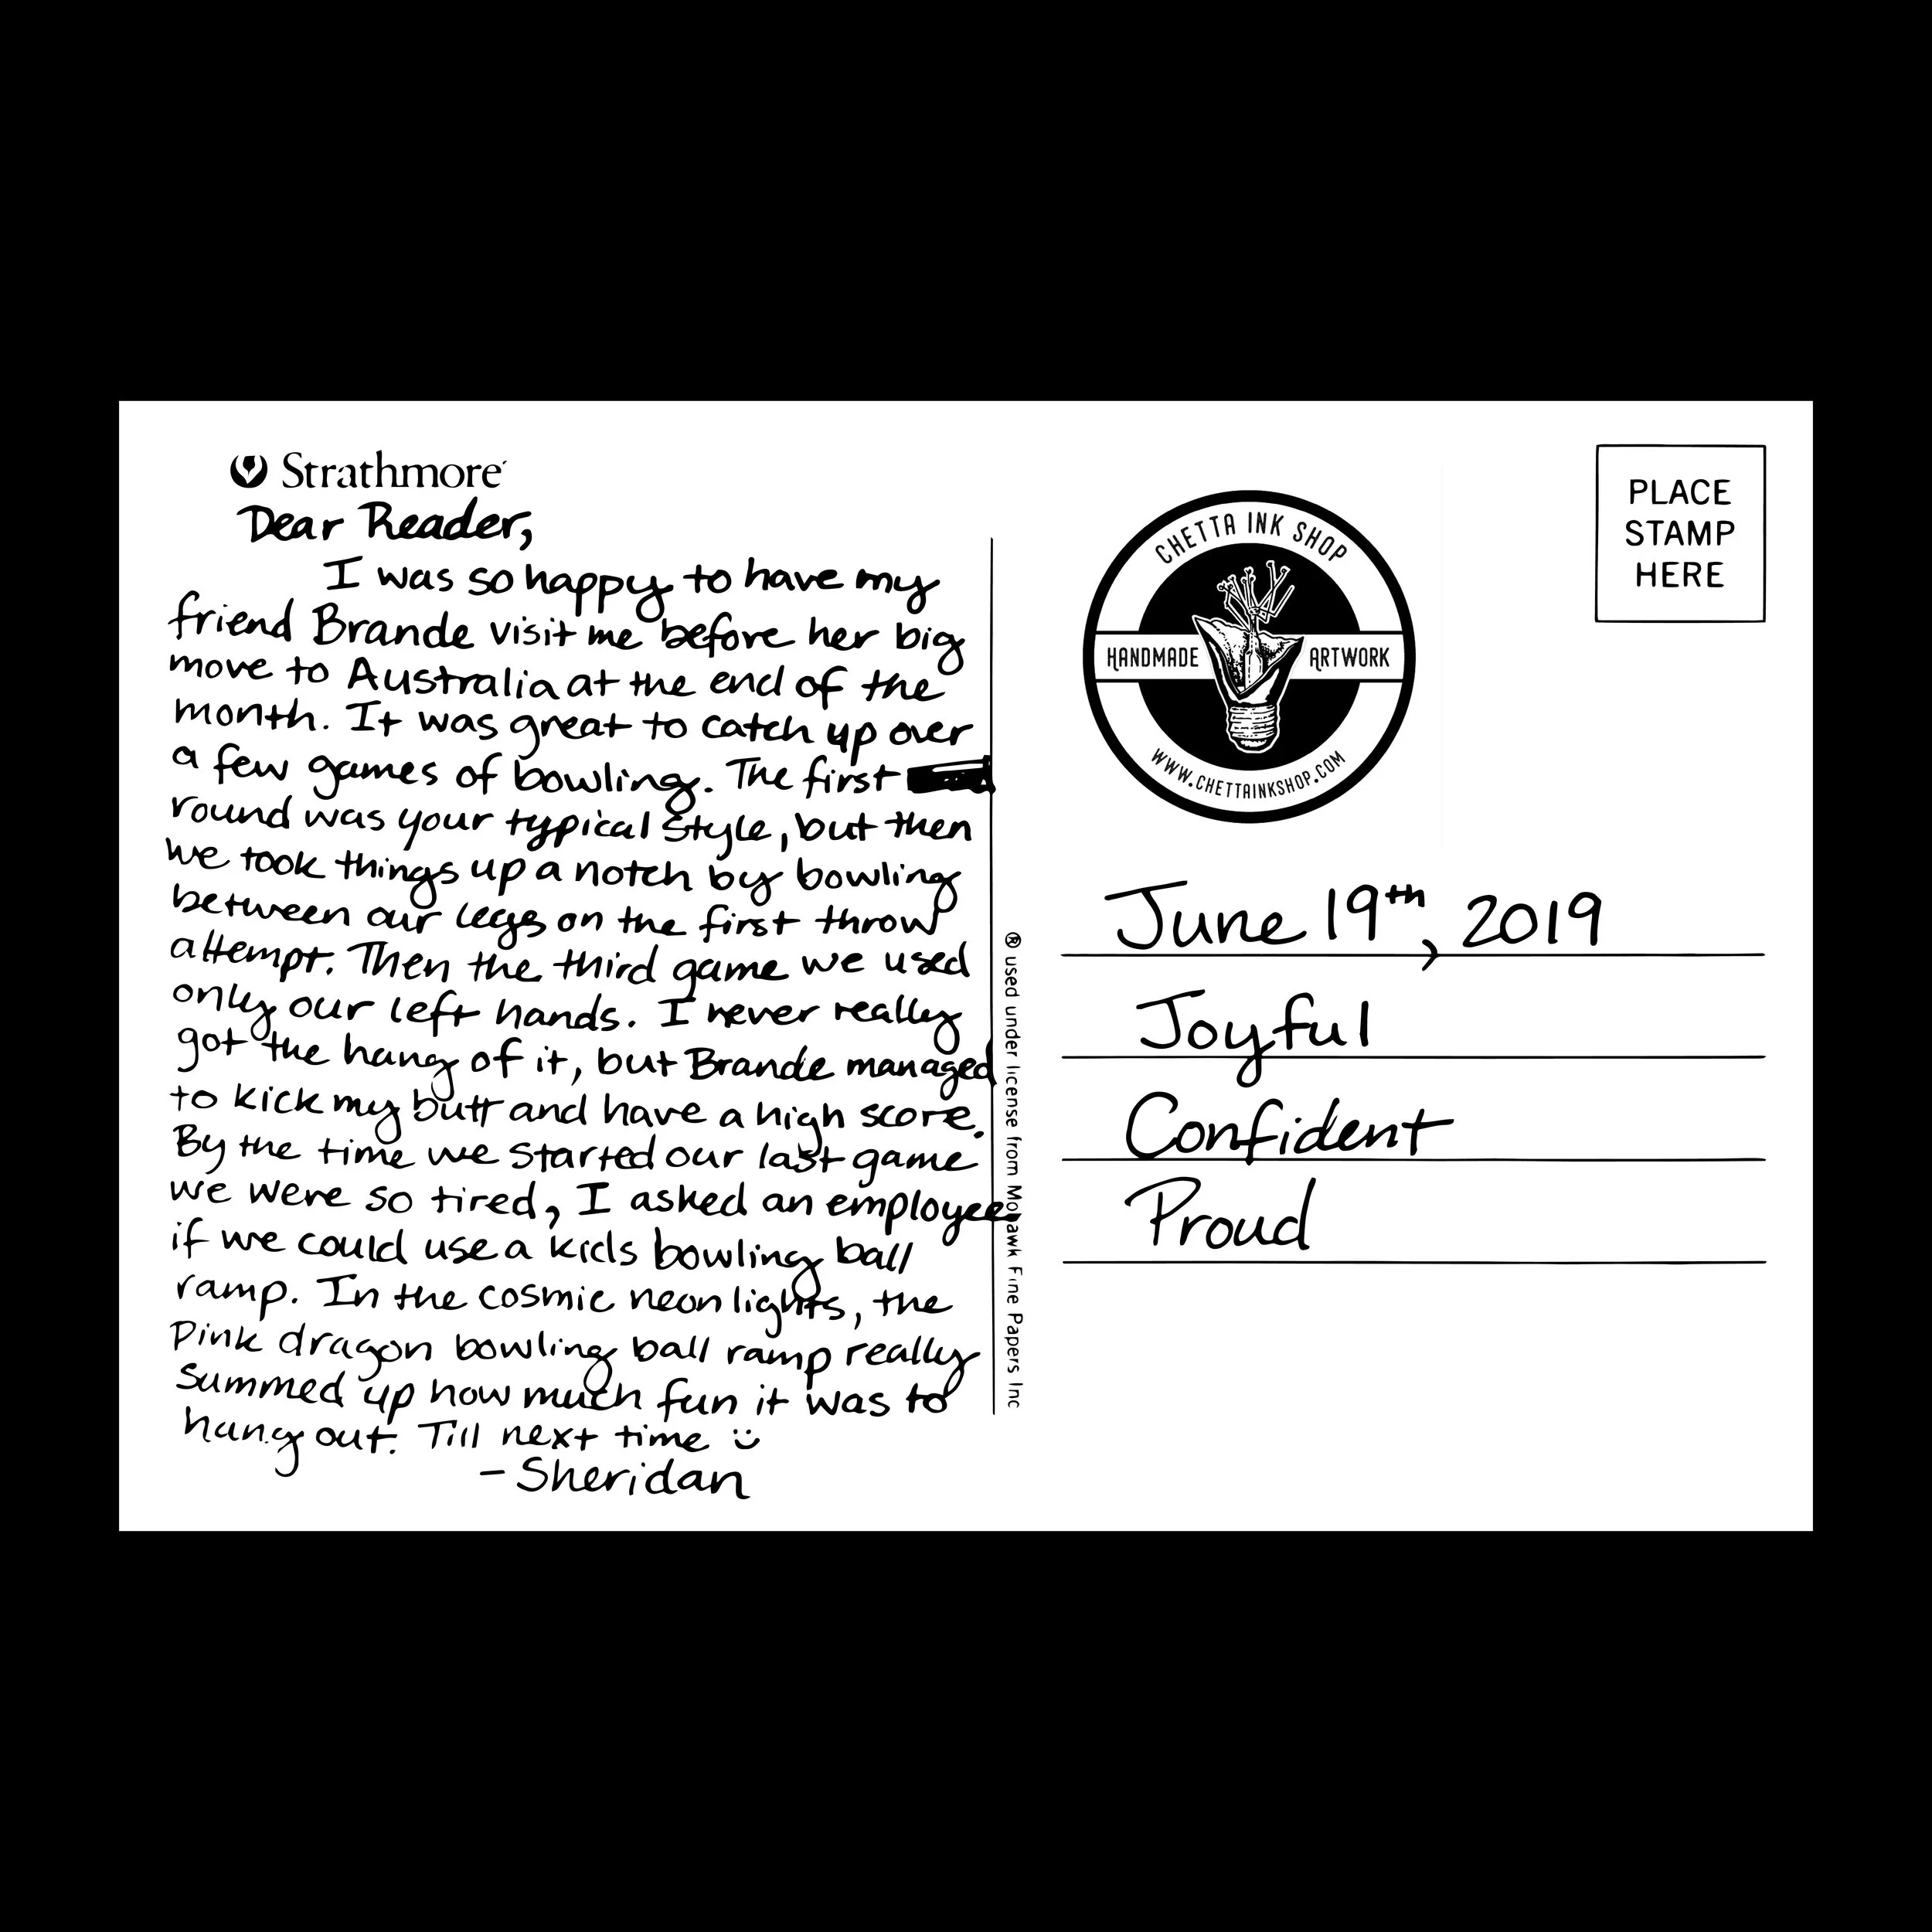 Strathmore
Dear Reader,
I was so happy to have my
friend Brande visit me before her big
move to Australia at the end of the
month. It was great to catch up over
a few games of bowling. The first
round was your typical style, but then
we took things up a notch by bowling
between our legs on the first throw
attempt. Then the third game we used
only our left hands. I never really
got the hang of it, but Brande managed
to kick my butt and have a high score.
By the time we started our last game
we were so tired, I asked an employee
if we could use a kids bowling ball
ramp. In the cosmic neon lights, the
Pink dragon bowling ball ramp really
summed up how much fun it was to
hang out. Till next time :)
- Sheridan
® used under license from Mohawk Fine Papers Inc
CHETTA INK SHOP
HANDMADE ARTWORK
WWW.CHETTAINKSHOP.COM
PLACE
STAMP
HERE
June 19th, 2019
Joyful
Confident
Proud